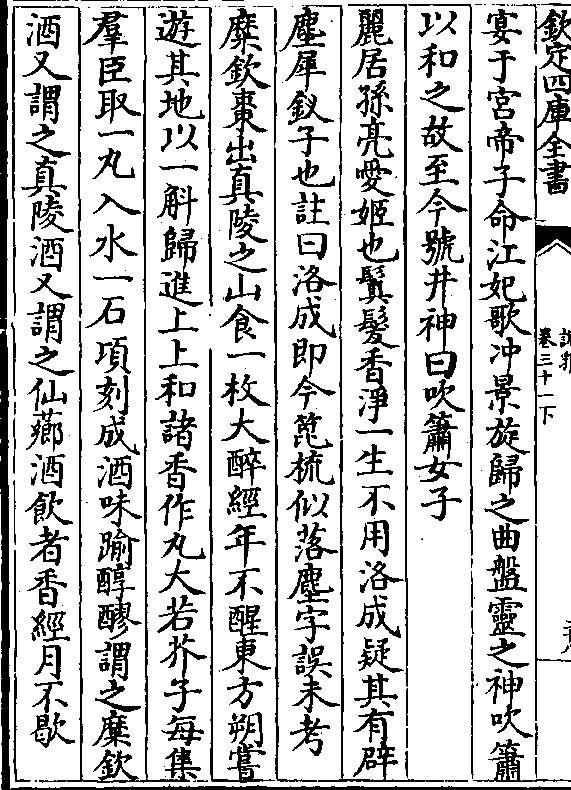 欽定四庫全書
說郛
卷三十一下
宴于宮帝子命江妃歌沖景旋歸之曲盤靈之神吹簫
以和之故至今號井神曰吹簫女子
麗居孫亮愛姬也鬒髮香淨一生不用洛成疑其有辟
塵犀釵子也註曰洛成即今篦梳似落塵字誤未考
糜欽棗出真陵之山食一枚大醉經年不醒東方朔嘗
遊其地以一斛歸進上上和諸香作丸大若芥子每集
羣臣取一丸入水一石項刻成酒味踰醇醪謂之糜欽
酒又謂之真陵酒又謂之仙薌酒飲者香經月不歇